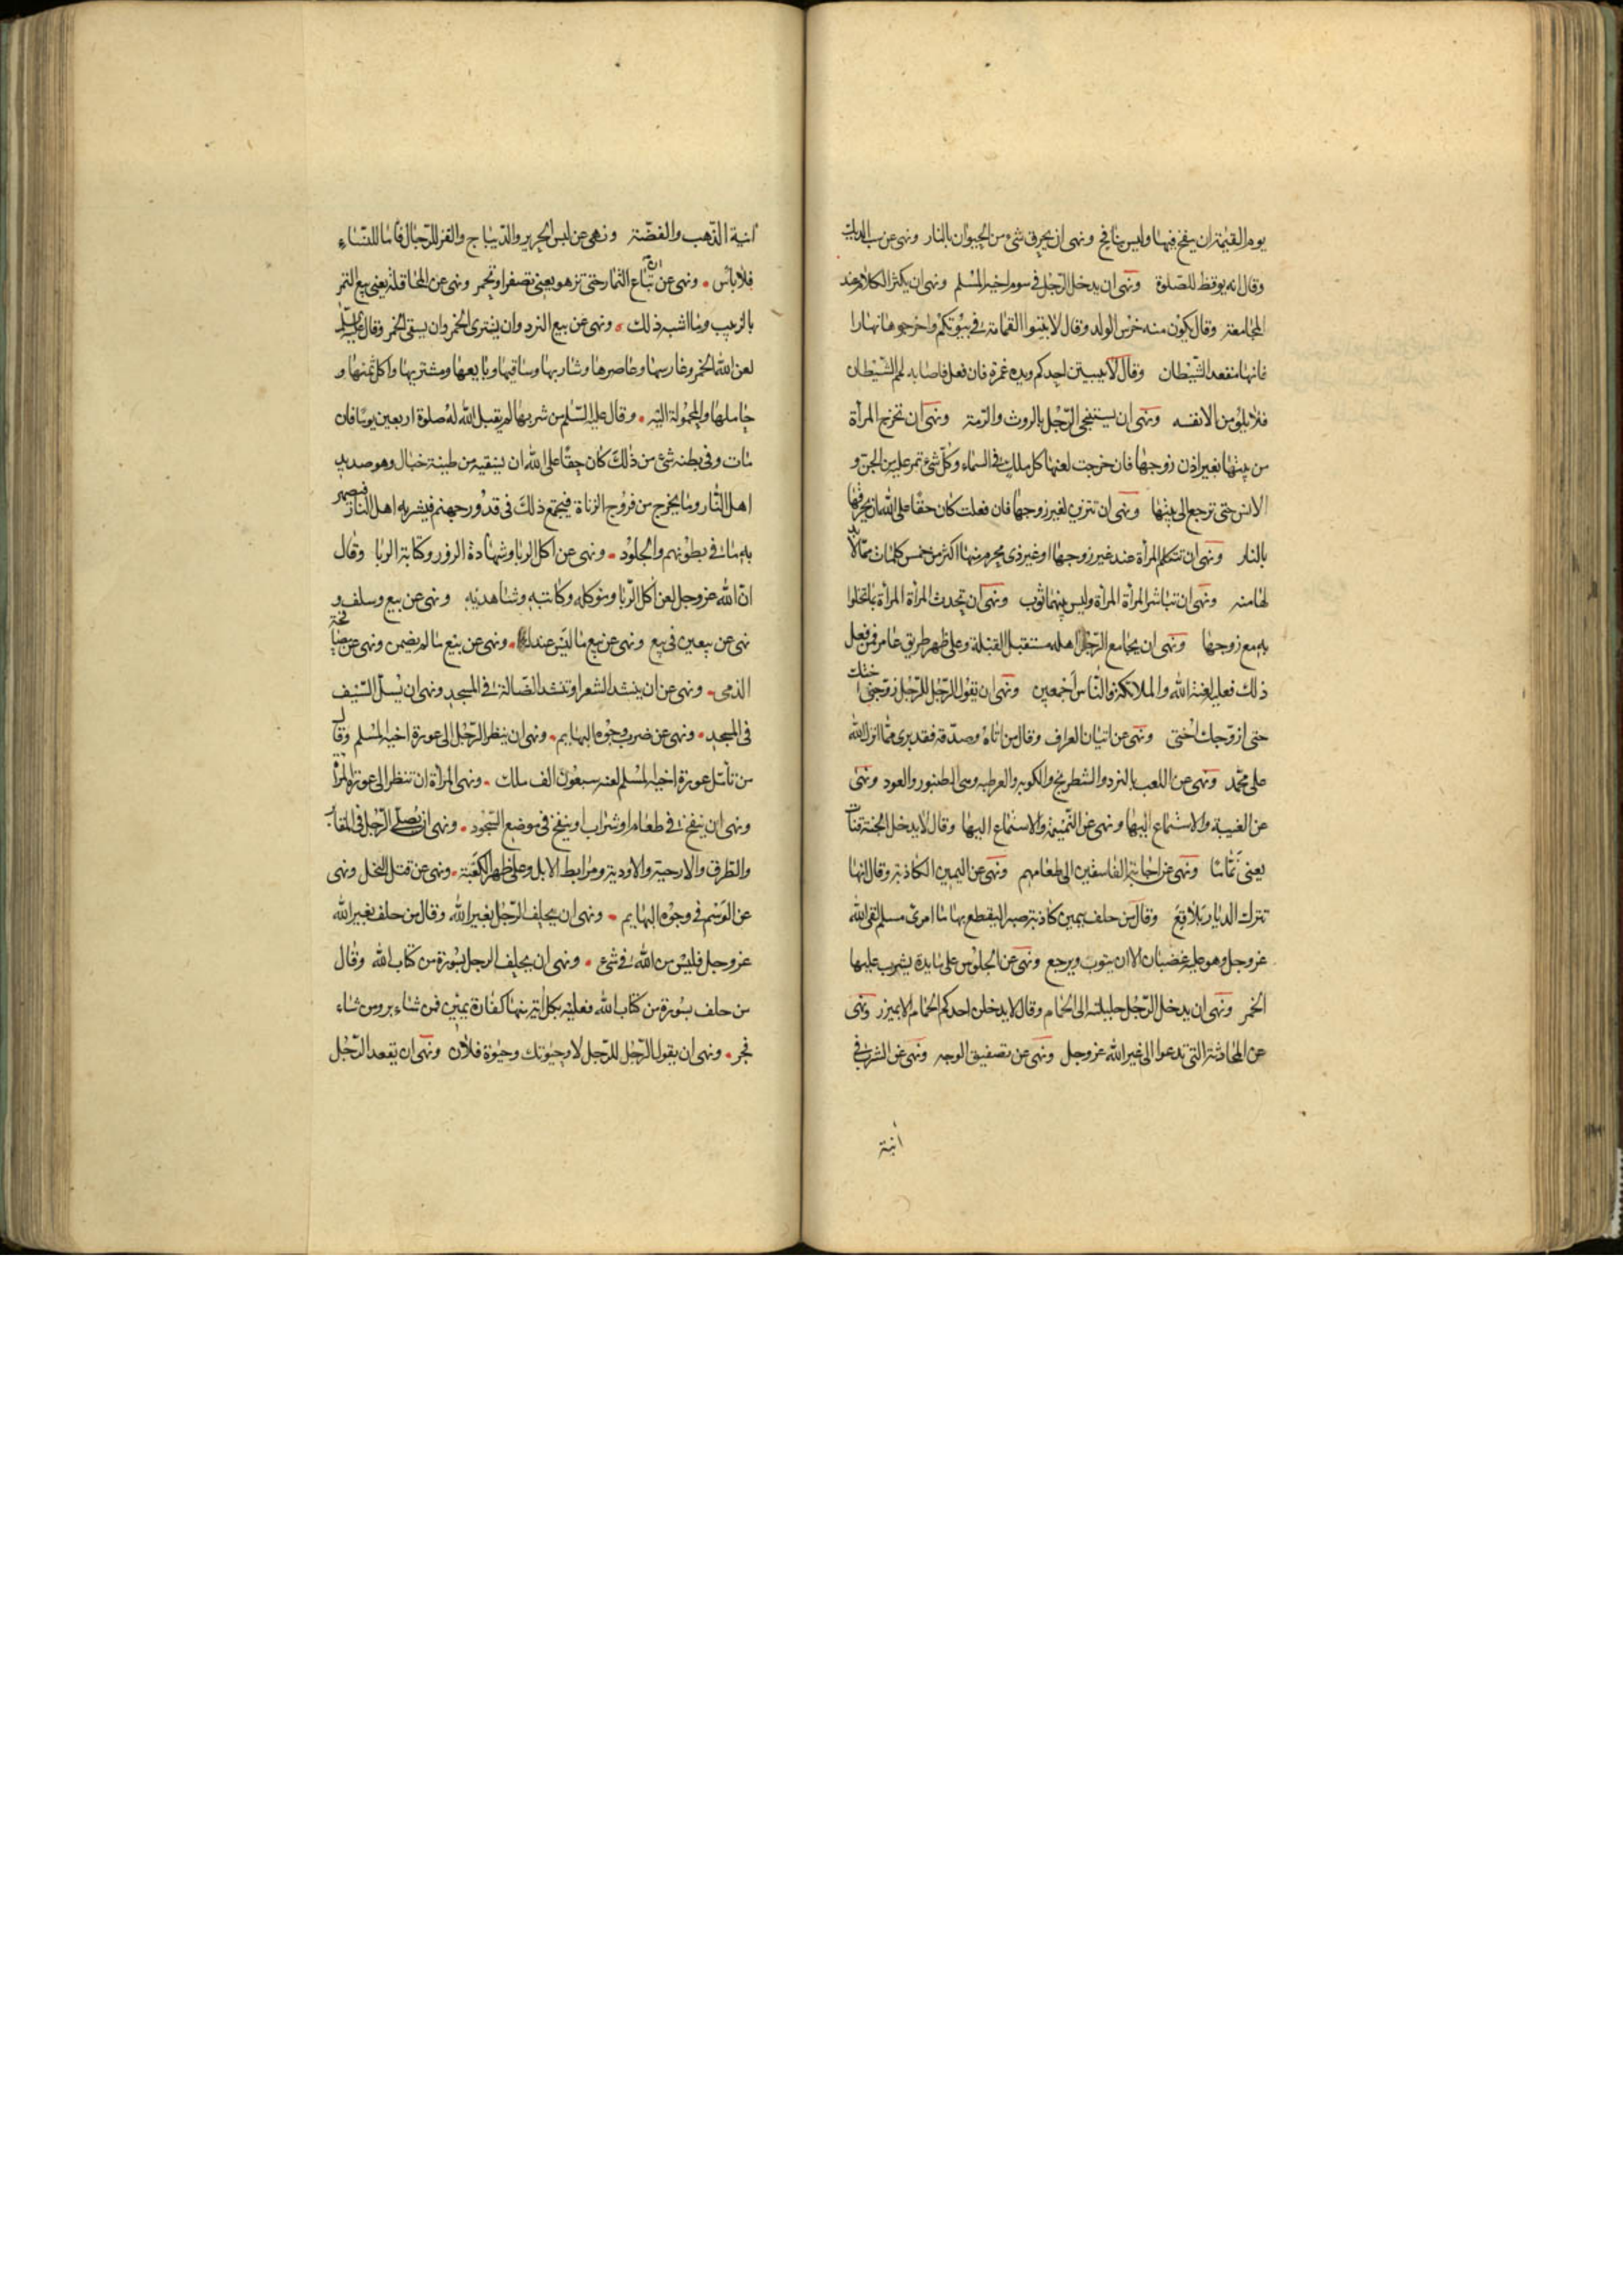 يوم القيمة ان ينفخ فيها وليس بنافخ ونهى ان يحرق شئ من الحيوان بالنار ونهى عن سب الديك
وقال انه يوقظ للصلوة ونهى ان يدخل الرجل فى سوم اخيه المسلم ونهى ان يكثر الكلام عند
المجامعة وقال يكون منه خرس الولد وقال لا تبيتوا القمامة فى بيوتكم واخرجوها نهارا
فانها مقعد الشيطان وقال لا يبيتن احدكم ويده غمرة فان فعل فاصابه لمم الشيطان
فلا يلومن الا نفسه ونهى ان يستنجى الرجل بالروث والرمة ونهى ان تخرج المرأة
من بيتها بغير اذن زوجها فان خرجت لعنها كل ملك فى السماء وكل شئ تمر عليه من الجن و
الانس حتى ترجع الى بيتها ونهى ان تتزين لغير زوجها فان فعلت كان حقا على الله ان يحرقها
بالنار ونهى ان تتكلم المرأة عند غير زوجها او غير ذى محرم منها اكثر من خمس كلمات مما لا بد
لها منه ونهى ان تباشر المرأة المرأة وليس بينهما ثوب ونهى ان تحدث المرأة المرأة بما تخلوا
به مع زوجها ونهى ان يجامع الرجل اهله مستقبل القبلة وعلى ظهر طريق عامر فمن فعل
ذلك فعليه لعنة الله والملائكة والناس اجمعين ونهى ان يقول الرجل للرجل زوجنى اختك
حتى ازوجك اختى ونهى عن اتيان العراف وقال من اتاه وصدقه فقد برى مما انزل الله
على محمد ونهى عن اللعب بالنرد والشطرنج والكوبه والعرطبه وهى الطنبور والعود ونهى
عن الغيبة والاستماع اليها ونهى عن النميمة والاستماع اليها وقال لا يدخل الجنة قتات
يعنى نماما ونهى عن اجابة الفاسقين الى طعامهم ونهى عن اليمين الكاذبة وقال انها
تترك الديار بلاقع وقال من حلف بيمين كاذبة صبرا ليقطع بها مال امرئ مسلم لقى الله
عز وجل وهو عليه غضبان الا ان يتوب ويرجع ونهى عن الجلوس على مايدة يشرب عليها
الخمر ونهى ان يدخل الرجل حليلته الى الحمام وقال لا يدخلن احدكم الحمام الا بميزر ونهى
عن المحادثة التى تدعوا الى غير الله عز وجل ونهى عن تصفيق الوجه ونهى عن الشرب فى
انية
انية الذهب والفضة ونهى عن لبس الحرير والديباج والقز للرجال فاما للنساء
فلا بأس ونهى عن ان تباع الثمار حتى تزهو يعنى تصفر او تحمر ونهى عن المحاقلة يعنى بيع التمر
بالزبيب وما اشبه ذلك ونهى عن بيع النرد وان يشترى الخمر وان يسقى الخمر وقال عليه السلم
لعن الله الخمر وغارسها وعاصرها وشاربها وساقيها وبايعها ومشتريها واكل ثمنها و
حاملها والمحمولة اليه وقال عليه السلم من شربها لم يقبل الله له صلوة اربعين يوما فان
مات وفى بطنه شئ من ذلك كان حقا على الله ان يسقيه من طينة خبال وهو صديد
اهل النار وما يخرج من فروج الزناة فيجتمع ذلك فى قدور جهنم فيشربه اهل النار فيصهر
به ما فى بطونهم والجلود ونهى عن اكل الربا وشهادة الزور وكتابة الربا وقال
ان الله عز وجل لعن اكل الربا وموكله وكاتبه وشاهديه ونهى عن بيع وسلف و
نهى عن بيعين فى بيع ونهى عن بيع ما ليس عندك ونهى عن بيع ما لم يضمن ونهى عن مصافحة
الذمى ونهى عن ان ينشد الشعر او تنشد الضالة فى المسجد ونهى ان يسل السيف
فى المسجد ونهى عن ضرب وجوه البهايم ونهى ان ينظر الرجل الى عورة اخيه المسلم وقال
من تأمل عورة اخيه المسلم لعنه سبعون الف ملك ونهى المرأة ان تنظر الى عورة المرأة
ونهى ان ينفخ فى طعام او شراب او ينفخ فى موضع السجود ونهى ان يصلى الرجل فى المقابر
والطرق والارحية والاودية ومرابط الابل وعلى ظهر الكعبة ونهى عن قتل النحل ونهى
عن الوسم فى وجوه البهايم ونهى ان يحلف الرجل بغير الله وقال من حلف بغير الله
عز وجل فليس من الله فى شئ ونهى ان يحلف الرجل بسورة من كتاب الله وقال
من حلف بسورة من كتاب الله فعليه بكل اية منها كفارة يمين فمن شاء بر ومن شاء
فجر ونهى ان يقول الرجل للرجل لا وحيوتك وحيوة فلان ونهى ان يقعد الرجل